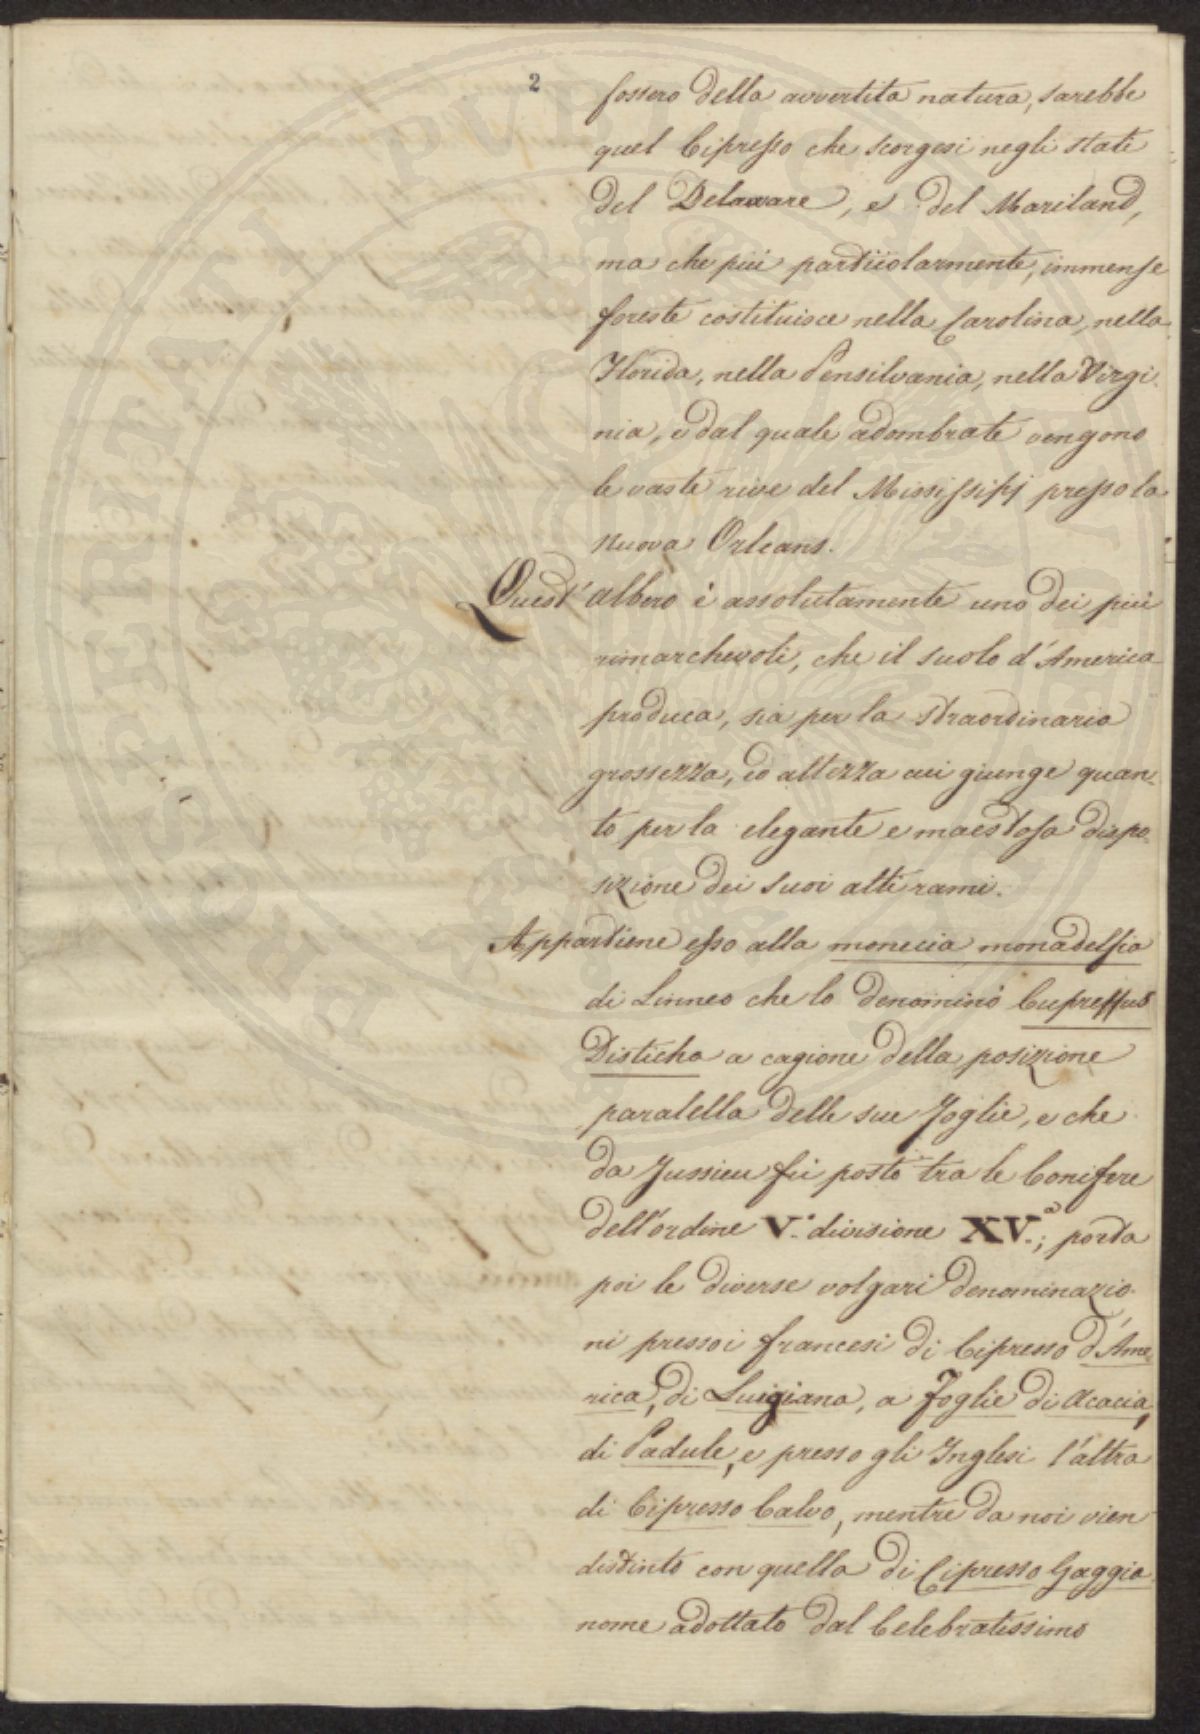 2
fossero della avvertita natura, sarebbe
quel Cipresso che scorgesi negli stati
del Delaware, e del Mariland,
ma che più particolarmente, immense
foreste costituisce nella Carolina, nella
Florida, nella Pensilvania, nella Virgi-
nia, e dal quale adombrate vengono
le vaste rive del Mississipj presso la
nuova Orleans.
Quest' albero è assolutamente uno dei più
rimarchevoli, che il suolo d'America
produca, sia per la straordinaria
grossezza, ed altezza cui giunge quan-
to per la elegante e maestosa dispo-
sizione dei suoi alti rami.
Appartiene esso alla monecia monadelfia
di Linneo che lo denominò Cupressus
Disticha a cagione della posizione
paralella delle sue foglie, e che
da Jussieu fù posto tra le Conifere
dell'ordine V.° divisione XV.a; porta
poi le diverse volgari denominazio-
ni presso i francesi di Cipresso d'Ame-
rica, di Luigiana, a foglie di Acacia,
di Padule, e presso gli Inglesi l'altra
di Cipresso Calvo, mentre da noi vien
distinto con quella di Cipresso Gaggia
nome adottato dal Celebratissimo